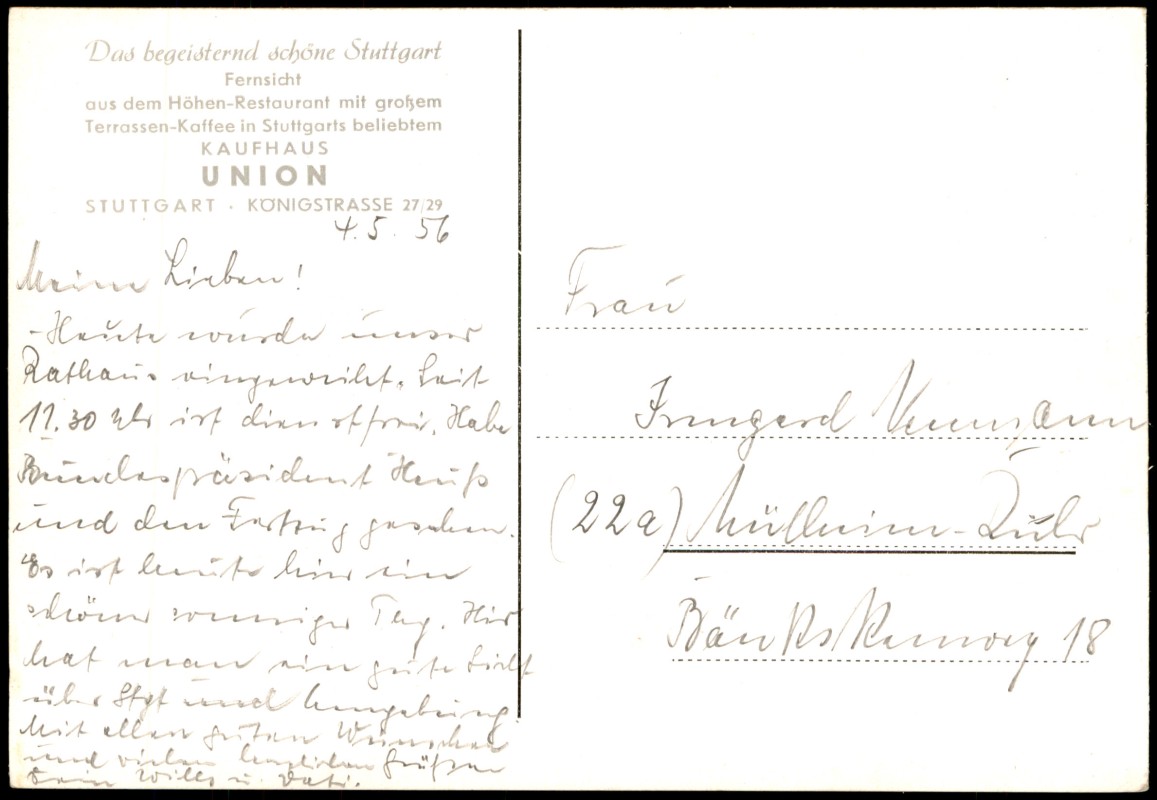 Das begeisternd schöne Stuttgart
Fernsicht
aus dem Höhen-Restaurant mit großem
Terrassen-Kaffee in Stuttgarts beliebtem
KAUFHAUS
UNION
STUTTGART · KÖNIGSTRASSE 27/29
4.5.56
Meine Lieben!
-Heute wurde unser
Rathaus eingeweiht. Seit
11.30 Uhr ist dienstfrei. Habe
Bundespräsident Heuß
und den Festzug gesehen.
Es ist heute hier ein
schöner sonniger Tag. Hier
hat man ein gute Sicht
über Stgt und Umgebung
Mit allen guten Wünschen
und vielen herzlichen Grüßen
Dein Willy u. Vati.
Frau
Irmgard
(22a) Mülheim-Ruhr
18